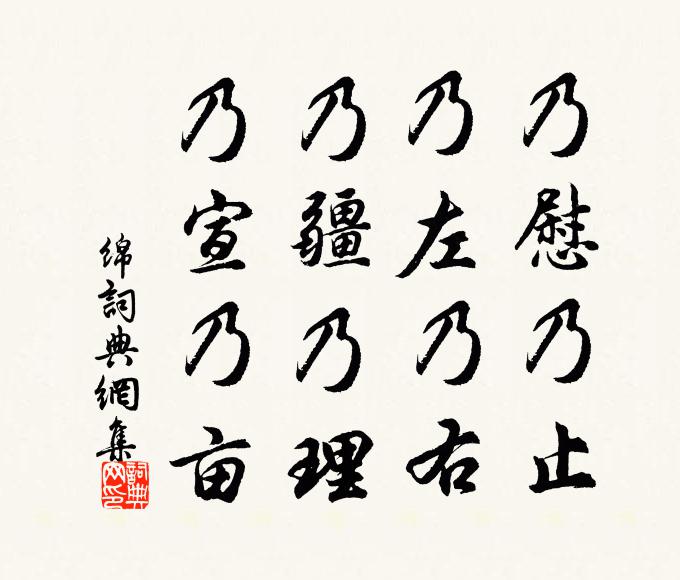 乃慰乃止
乃左乃右
乃疆乃理
乃宣乃亩
绵詞典網集
詞典网印